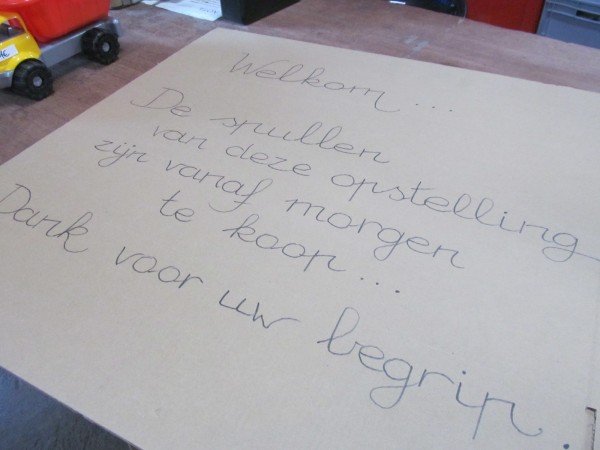 Welkom...
De spullen
van deze opstelling
zijn vanaf morgen
te koop...
Dank voor uw begrip.